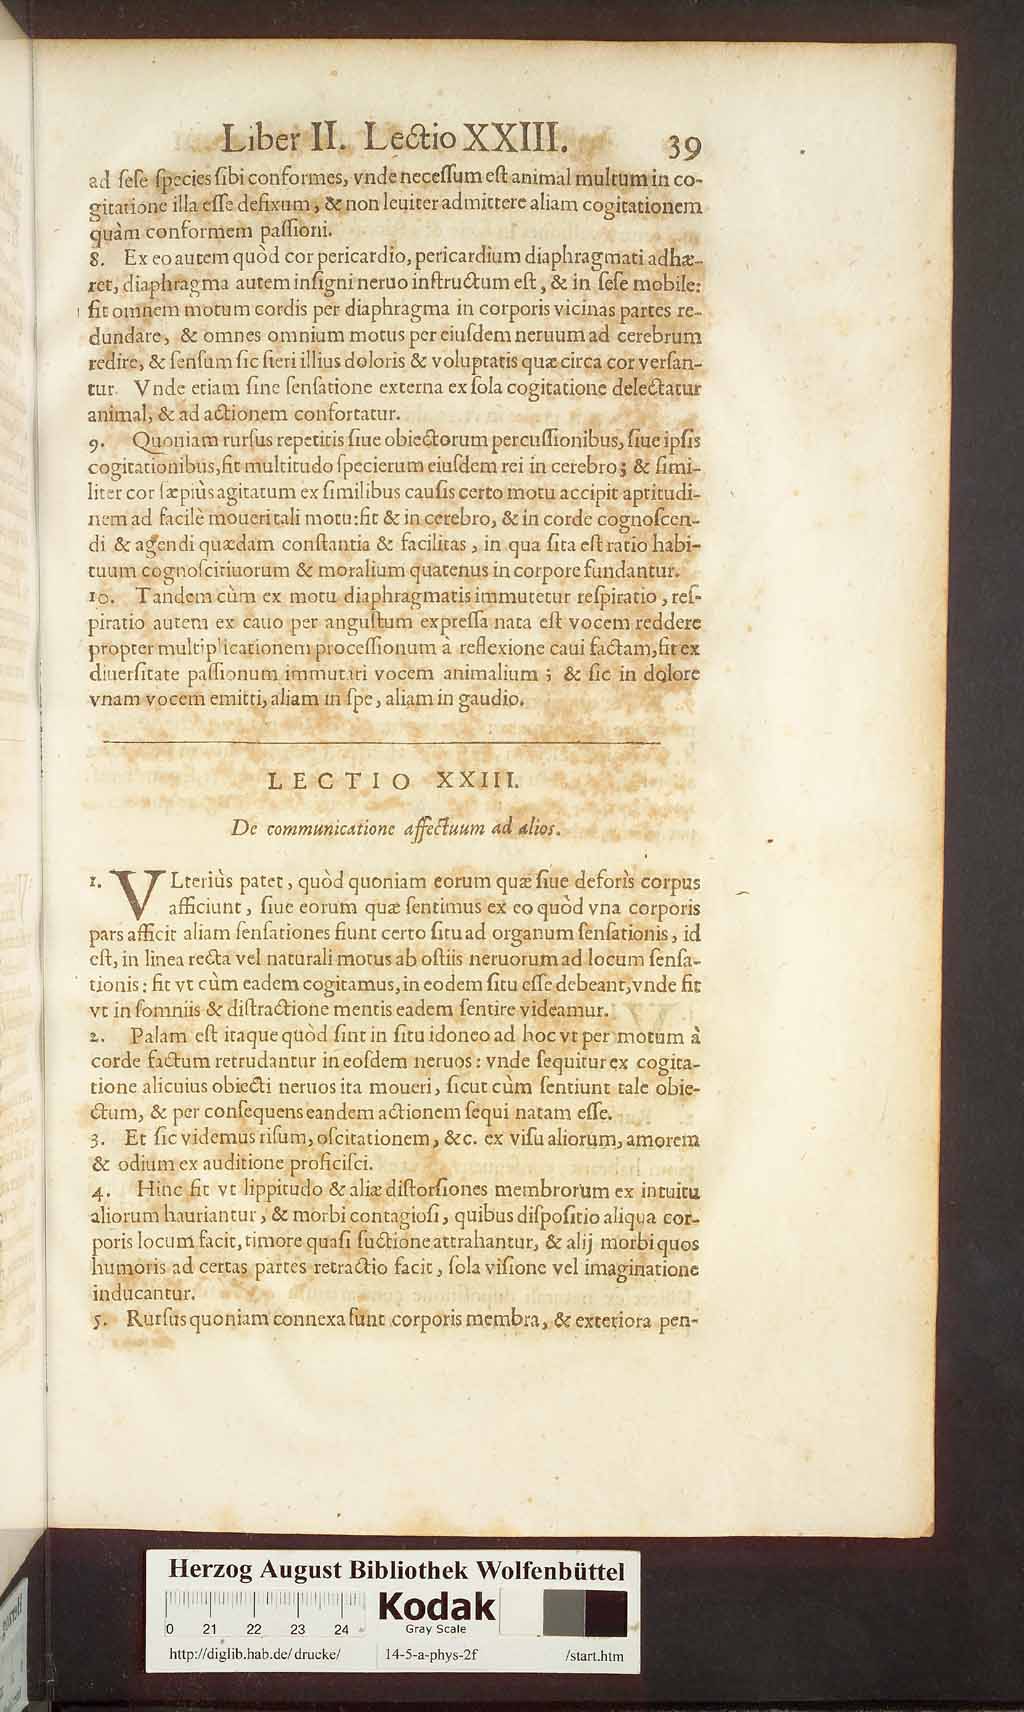 Liber II. Lectio XXIII. 39
ad ſeſe ſpecies ſibi conformes, vnde neceſſum eſt animal multum in co-
gitatione illa eſſe defixum, & non leuiter admittere aliam cogitationem
quàm conformem paſſioni.
8. Ex eo autem quòd cor pericardio, pericardium diaphragmati adhæ-
ret, diaphragma autem inſigni neruo inſtructum eſt, & in ſeſe mobile:
fit omnem motum cordis per diaphragma in corporis vicinas partes re-
dundare, & omnes omnium motus per eiuſdem neruum ad cerebrum
redire, & ſenſum ſic fieri illius doloris & voluptatis quæ circa cor verſan-
tur. Vnde etiam ſine ſenſatione externa ex ſola cogitatione delectatur
animal, & ad actionem confortatur.
9. Quoniam rurſus repetitis ſiue obiectorum percuſſionibus, ſiue ipſis
cogitationibus, fit multitudo ſpecierum eiuſdem rei in cerebro; & ſimi-
liter cor ſæpiùs agitatum ex ſimilibus cauſis certo motu accipit aptitudi-
nem ad facilè moueri tali motu: fit & in cerebro, & in corde cognoſcen-
di & agendi quædam conſtantia & facilitas, in qua ſita eſt ratio habi-
tuum cognoſcitiuorum & moralium quatenus in corpore fundantur.
10. Tandem cùm ex motu diaphragmatis immutetur reſpiratio, reſ-
piratio autem ex cauo per anguſtum expreſſa nata eſt vocem reddere
propter multiplicationem proceſſionum à reflexione caui factam, fit ex
diuerſitate paſſionum immutari vocem animalium; & ſic in dolore
vnam vocem emitti, aliam in ſpe, aliam in gaudio.
LECTIO XXIII.
De communicatione affectuum ad alios.
1. VLteriùs patet, quòd quoniam eorum quæ ſiue deforis corpus
afficiunt, ſiue eorum quæ ſentimus ex eo quòd vna corporis
pars afficit aliam ſenſationes fiunt certo ſitu ad organum ſenſationis, id
eſt, in linea recta vel naturali motus ab oſtiis neruorum ad locum ſenſa-
tionis: fit vt cùm eadem cogitamus, in eodem ſitu eſſe debeant, vnde fit
vt in ſomniis & diſtractione mentis eadem ſentire videamur.
2. Palam eſt itaque quòd ſint in ſitu idoneo ad hoc vt per motum à
corde factum retrudantur in eoſdem neruos: vnde ſequitur ex cogita-
tione alicuius obiecti neruos ita moueri, ſicut cùm ſentiunt tale obie-
ctum, & per conſequens eandem actionem ſequi natam eſſe.
3. Et ſic videmus riſum, oſcitationem, &c. ex viſu aliorum, amorem
& odium ex auditione proficiſci.
4. Hinc fit vt lippitudo & aliæ diſtorſiones membrorum ex intuitu
aliorum hauriantur, & morbi contagioſi, quibus diſpoſitio aliqua cor-
poris locum facit, timore quaſi ſuctione attrahantur, & alij morbi quos
humoris ad certas partes retractio facit, ſola viſione vel imaginatione
inducantur.
5. Rurſus quoniam connexa ſunt corporis membra, & exteriora pen-
Herzog August Bibliothek Wolfenbüttel
0 21 22 23 24
Kodak
Gray Scale
http://diglib.hab.de/drucke/ 14-5-a-phys-2f /start.htm